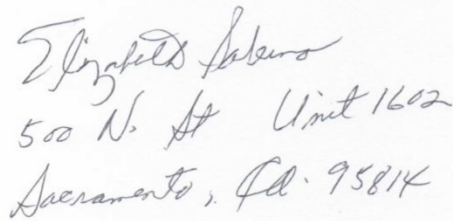 Elizabeth
500 N. St Unit 1602
Sacramento, Ca. 95814